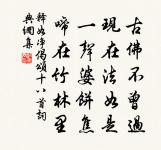 古佛不曾過
現在法如是
一聲婆餅焦
啼在竹林里
釋如净偈頌十八首詞
典網集